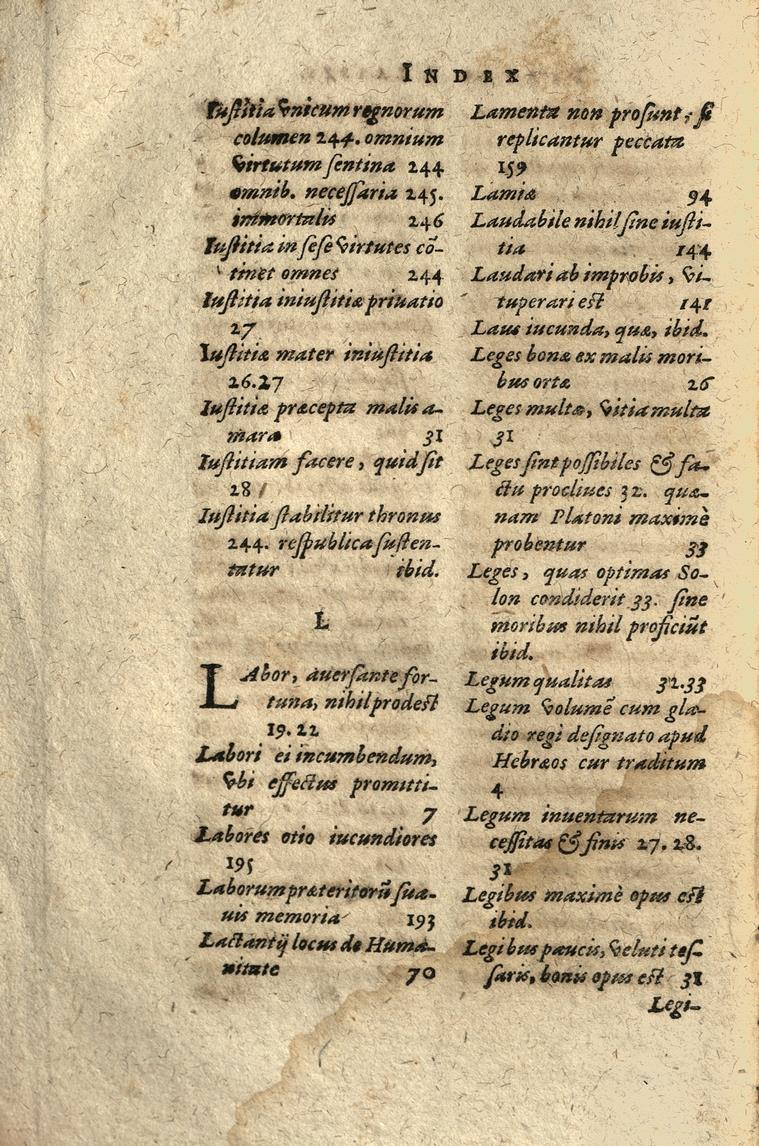 INDEX
Iustitia vnicum regnorum
columen 244. omnium
virtutum sentina 244
omnib. necessaria 245.
immortalis 246
Iustitia in sese virtutes cō-
tinet omnes 244
Iustitia iniustitiæ priuatio
27
Iustitiæ mater iniustitia
26.27
Iustitiæ præcepta malis a-
mara 31
Iustitiam facere, quid sit
28
Iustitia stabilitur thronus
244. respublica susten-
tatur ibid.
L
LAbor, auersante for-
tuna, nihil prodest
19.22
Labori ei incumbendum,
vbi effectus promitti-
tur 7
Labores otio iucundiores
195
Laborum præteritorū sua-
uis memoria 193
Lactantij locus de Huma-
nitate 70
Lamenta non prosunt, si
replicantur peccata
159
Lamiæ 94
Laudabile nihil sine iusti-
tia 144
Laudari ab improbis, vi-
tuperari est 141
Laus iucunda, quæ, ibid.
Leges bonæ ex malis mori-
bus ortæ 26
Leges multæ, vitia multa
31
Leges sint possibiles & fa-
ctu procliues 32. quæ-
nam Platoni maximè
probentur 33
Leges, quas optimas So-
lon condiderit 33. sine
moribus nihil proficiūt
ibid.
Legum qualitas 32.33
Legum volumē cum gla-
dio regi designato apud
Hebræos cur traditum
4
Legum inuentarum ne-
cessitas & finis 27. 28.
31
Legibus maximè opus est
ibid.
Legibus paucis, veluti tes-
saris, bonis opus est 31
Legi-